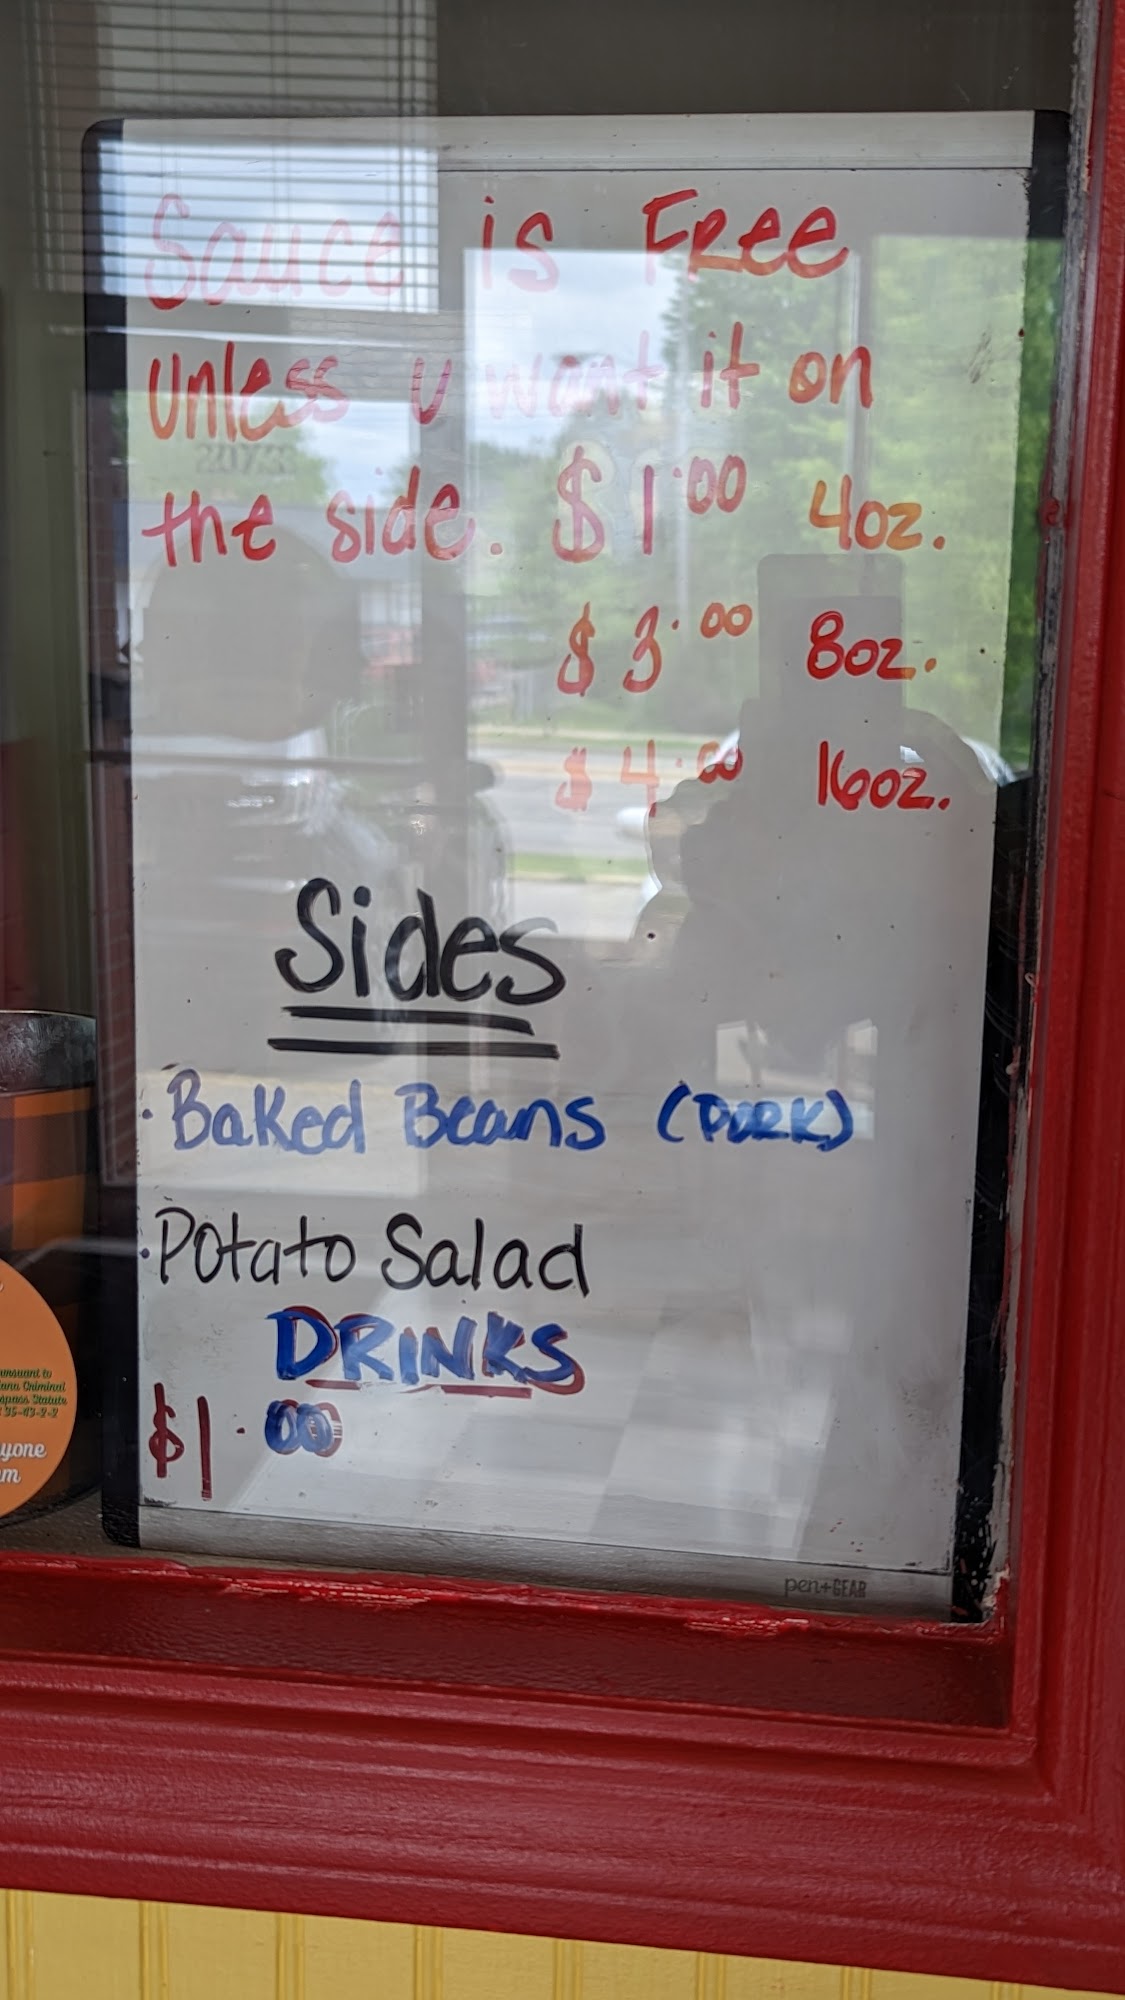 Sauce is Free
unless u want it on
the side. $1.00 4oz.
$3.00 8oz.
$4.00 16oz.
Sides
• Baked Beans (PORK)
• Potato Salad
DRINKS
$1.00
pen+GEAR
pursuant to
Criminal
Statute
35-43-2-2